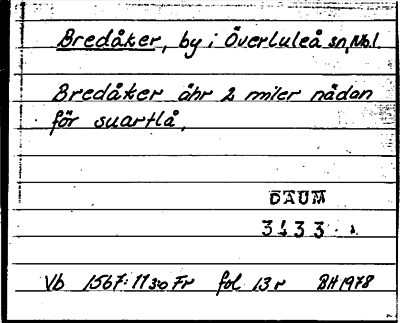 Bredåker, by i Överluleå sn, Nbl.
Bredåker åhr 2 miler nådan
för suartlå.
DAUM
3433
Vb 1567:11 30 Fr fol 13 r BH 1978